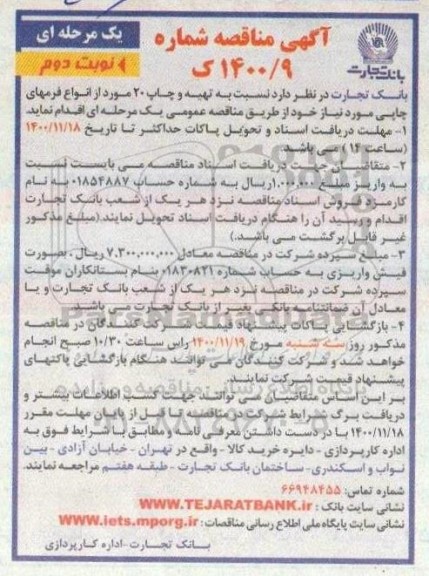 آگهی مناقصه شماره
۱۴۰۰/۹ ک
یک مرحله ای
نوبت دوم
بانک تجارت
بانک تجارت در نظر دارد نسبت به تهیه و چاپ ۲۰ مورد از انواع فرمهای
چاپی مورد نیاز خود از طریق مناقصه عمومی یک مرحله ای اقدام نماید.
۱- مهلت دریافت اسناد و تحویل پاکات حداکثر تا تاریخ ۱۴۰۰/۱۱/۱۸
(ساعت ۱۴) می باشد.
۲- متقاضیان جهت دریافت اسناد مناقصه می بایست نسبت
به واریز مبلغ ۱،۰۰۰،۰۰۰ ریال به شماره حساب ۰۱۸۵۴۸۸۷ به نام
کارمزد فروش اسناد مناقصه نزد هر یک از شعب بانک تجارت
اقدام و رسید آن را هنگام دریافت اسناد تحویل نمایند.(مبلغ مذکور
غیر قابل برگشت می باشد.)
۳- مبلغ سپرده شرکت در مناقصه معادل ۷،۳۰۰،۰۰۰،۰۰۰ ریال ـ بصورت
فیش واریزی به حساب شماره ۰۱۸۳۰۸۲۱ بنام بستانکاران موقت
سپرده شرکت در مناقصه نزد هر یک از شعب بانک تجارت و یا
معادل آن ضمانتنامه بانکی بغیر از بانک تجارت می باشد.
۴- بازگشایی پاکات پیشنهاد قیمت شرکت کنندگان در مناقصه
مذکور روز سه شنبه مورخ ۱۴۰۰/۱۱/۱۹ راس ساعت ۱۰/۳۰ صبح انجام
خواهد شد و شرکت کنندگان می توانند هنگام بازگشایی پاکتهای
پیشنهاد قیمت شرکت نمایند.
بر این اساس متقاضیان می توانند جهت کسب اطلاعات بیشتر و
دریافت برگ شرایط شرکت در مناقصه تا قبل از پایان مهلت مقرر
۱۴۰۰/۱۱/۱۸ با در دست داشتن معرفی نامه و مطابق با شرایط فوق به
اداره کارپردازی - دایره خرید کالا - واقع در تهران - خیابان آزادی - بین
نواب و اسکندری- ساختمان بانک تجارت - طبقه هفتم مراجعه نمایند.
شماره تماس: ۶۶۹۴۸۴۵۵
نشانی سایت بانک: WWW.TEJARATBANK.ir
نشانی سایت پایگاه ملی اطلاع رسانی مناقصات: www.iets.mporg.ir
بانک تجارت--اداره کارپردازی